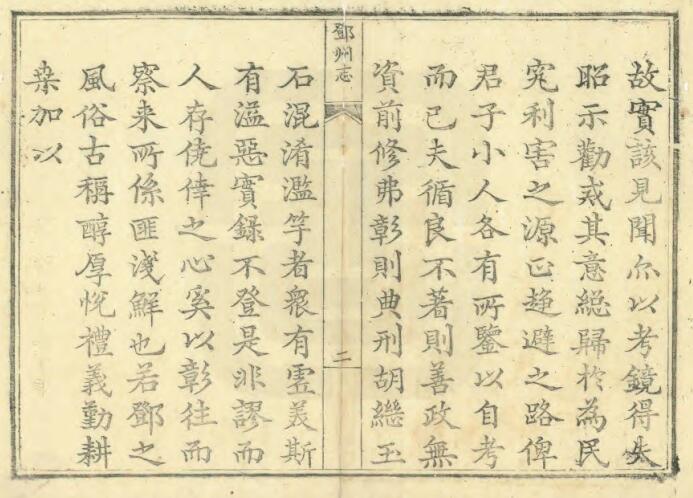 故實該見聞尒以考鏡得失
昭示勸戒其意緫歸於為民
究利害之源正趍避之路俾
君子小人各有所鑒以自考
而已夫循良不著則善政無
資前修弗彰則典刑胡繼玉
鄧州志
二
石混淆濫竽者衆有虛美斯
有溢惡實録不登是非謬而
人存僥倖之心奚以彰往而
察来所係匪淺鮮也若鄧之
風俗古稱醇厚恱禮義勤耕
桒加以